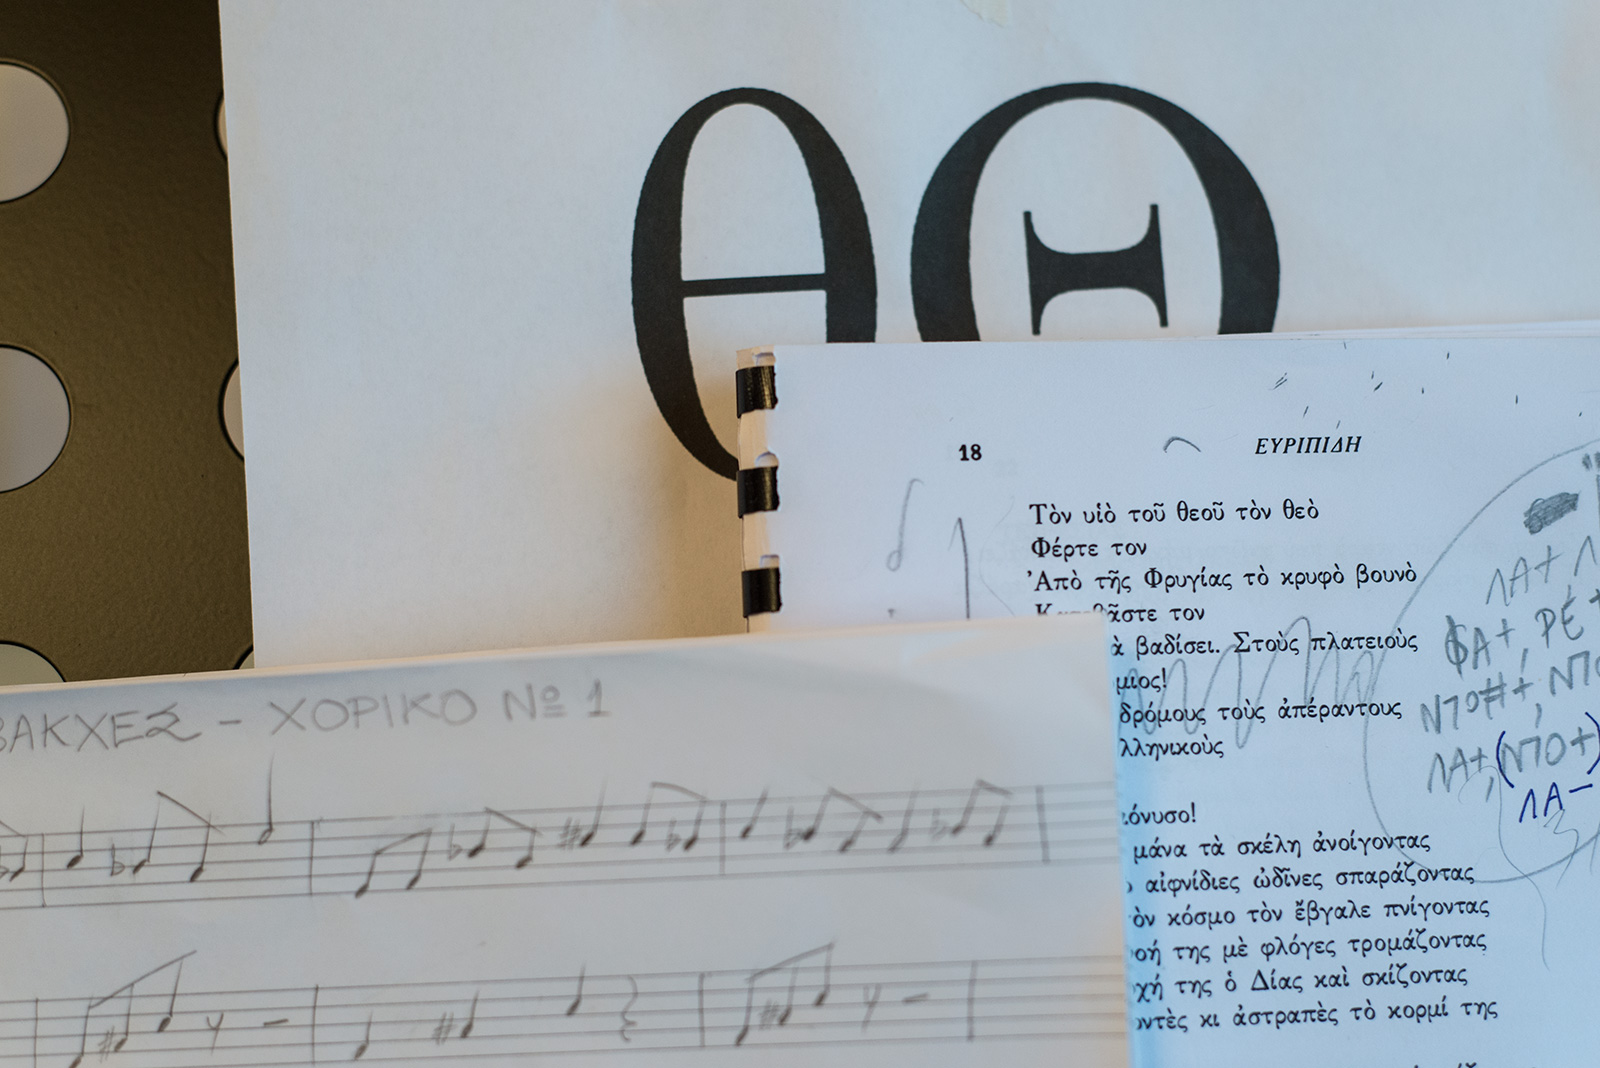 θΘ
18 ΕΥΡΙΠΙΔΗ
Τὸν υἱὸ τοῦ θεοῦ τὸν θεὸ
Φέρτε τον
Ἀπὸ τῆς Φρυγίας τὸ κρυφὸ βουνὸ
τον
βαδίσει. Στοὺς πλατειοὺς
δρόμους τοὺς ἀπέραντους
μάνα τὰ σκέλη ἀνοίγοντας
αἰφνίδιες ὠδῖνες σπαράζοντας
κόσμο τὸν ἔβγαλε πνίγοντας
της μὲ φλόγες τρομάζοντας
της ὁ Δίας καὶ σκίζοντας
κι ἀστραπὲς τὸ κορμί της
ΛΑ+
ΦΑ+, ΡΕ+
ΝΤΟ#+, ΝΤΟ
ΛΑ+, (ΝΤΟ+)
ΛΑ-
ΒΑΚΧΕΣ - ΧΟΡΙΚΟ Νº 1